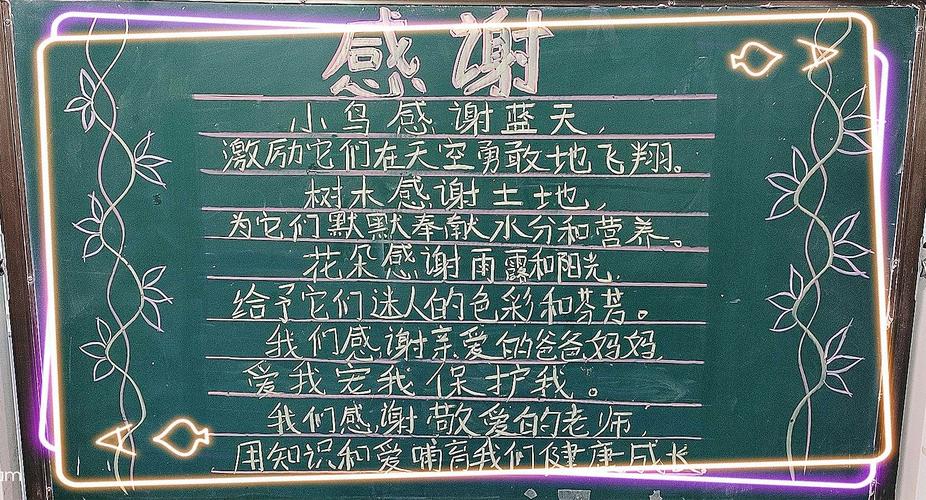 感谢
小鸟感谢蓝天，
激励它们在天空勇敢地飞翔。
树木感谢土地，
为它们默默奉献水分和营养。
花朵感谢雨露和阳光，
给予它们迷人的色彩和芬芳。
我们感谢亲爱的爸爸妈妈，
爱我宠我保护我。
我们感谢敬爱的老师，
用知识和爱哺育我们健康成长。